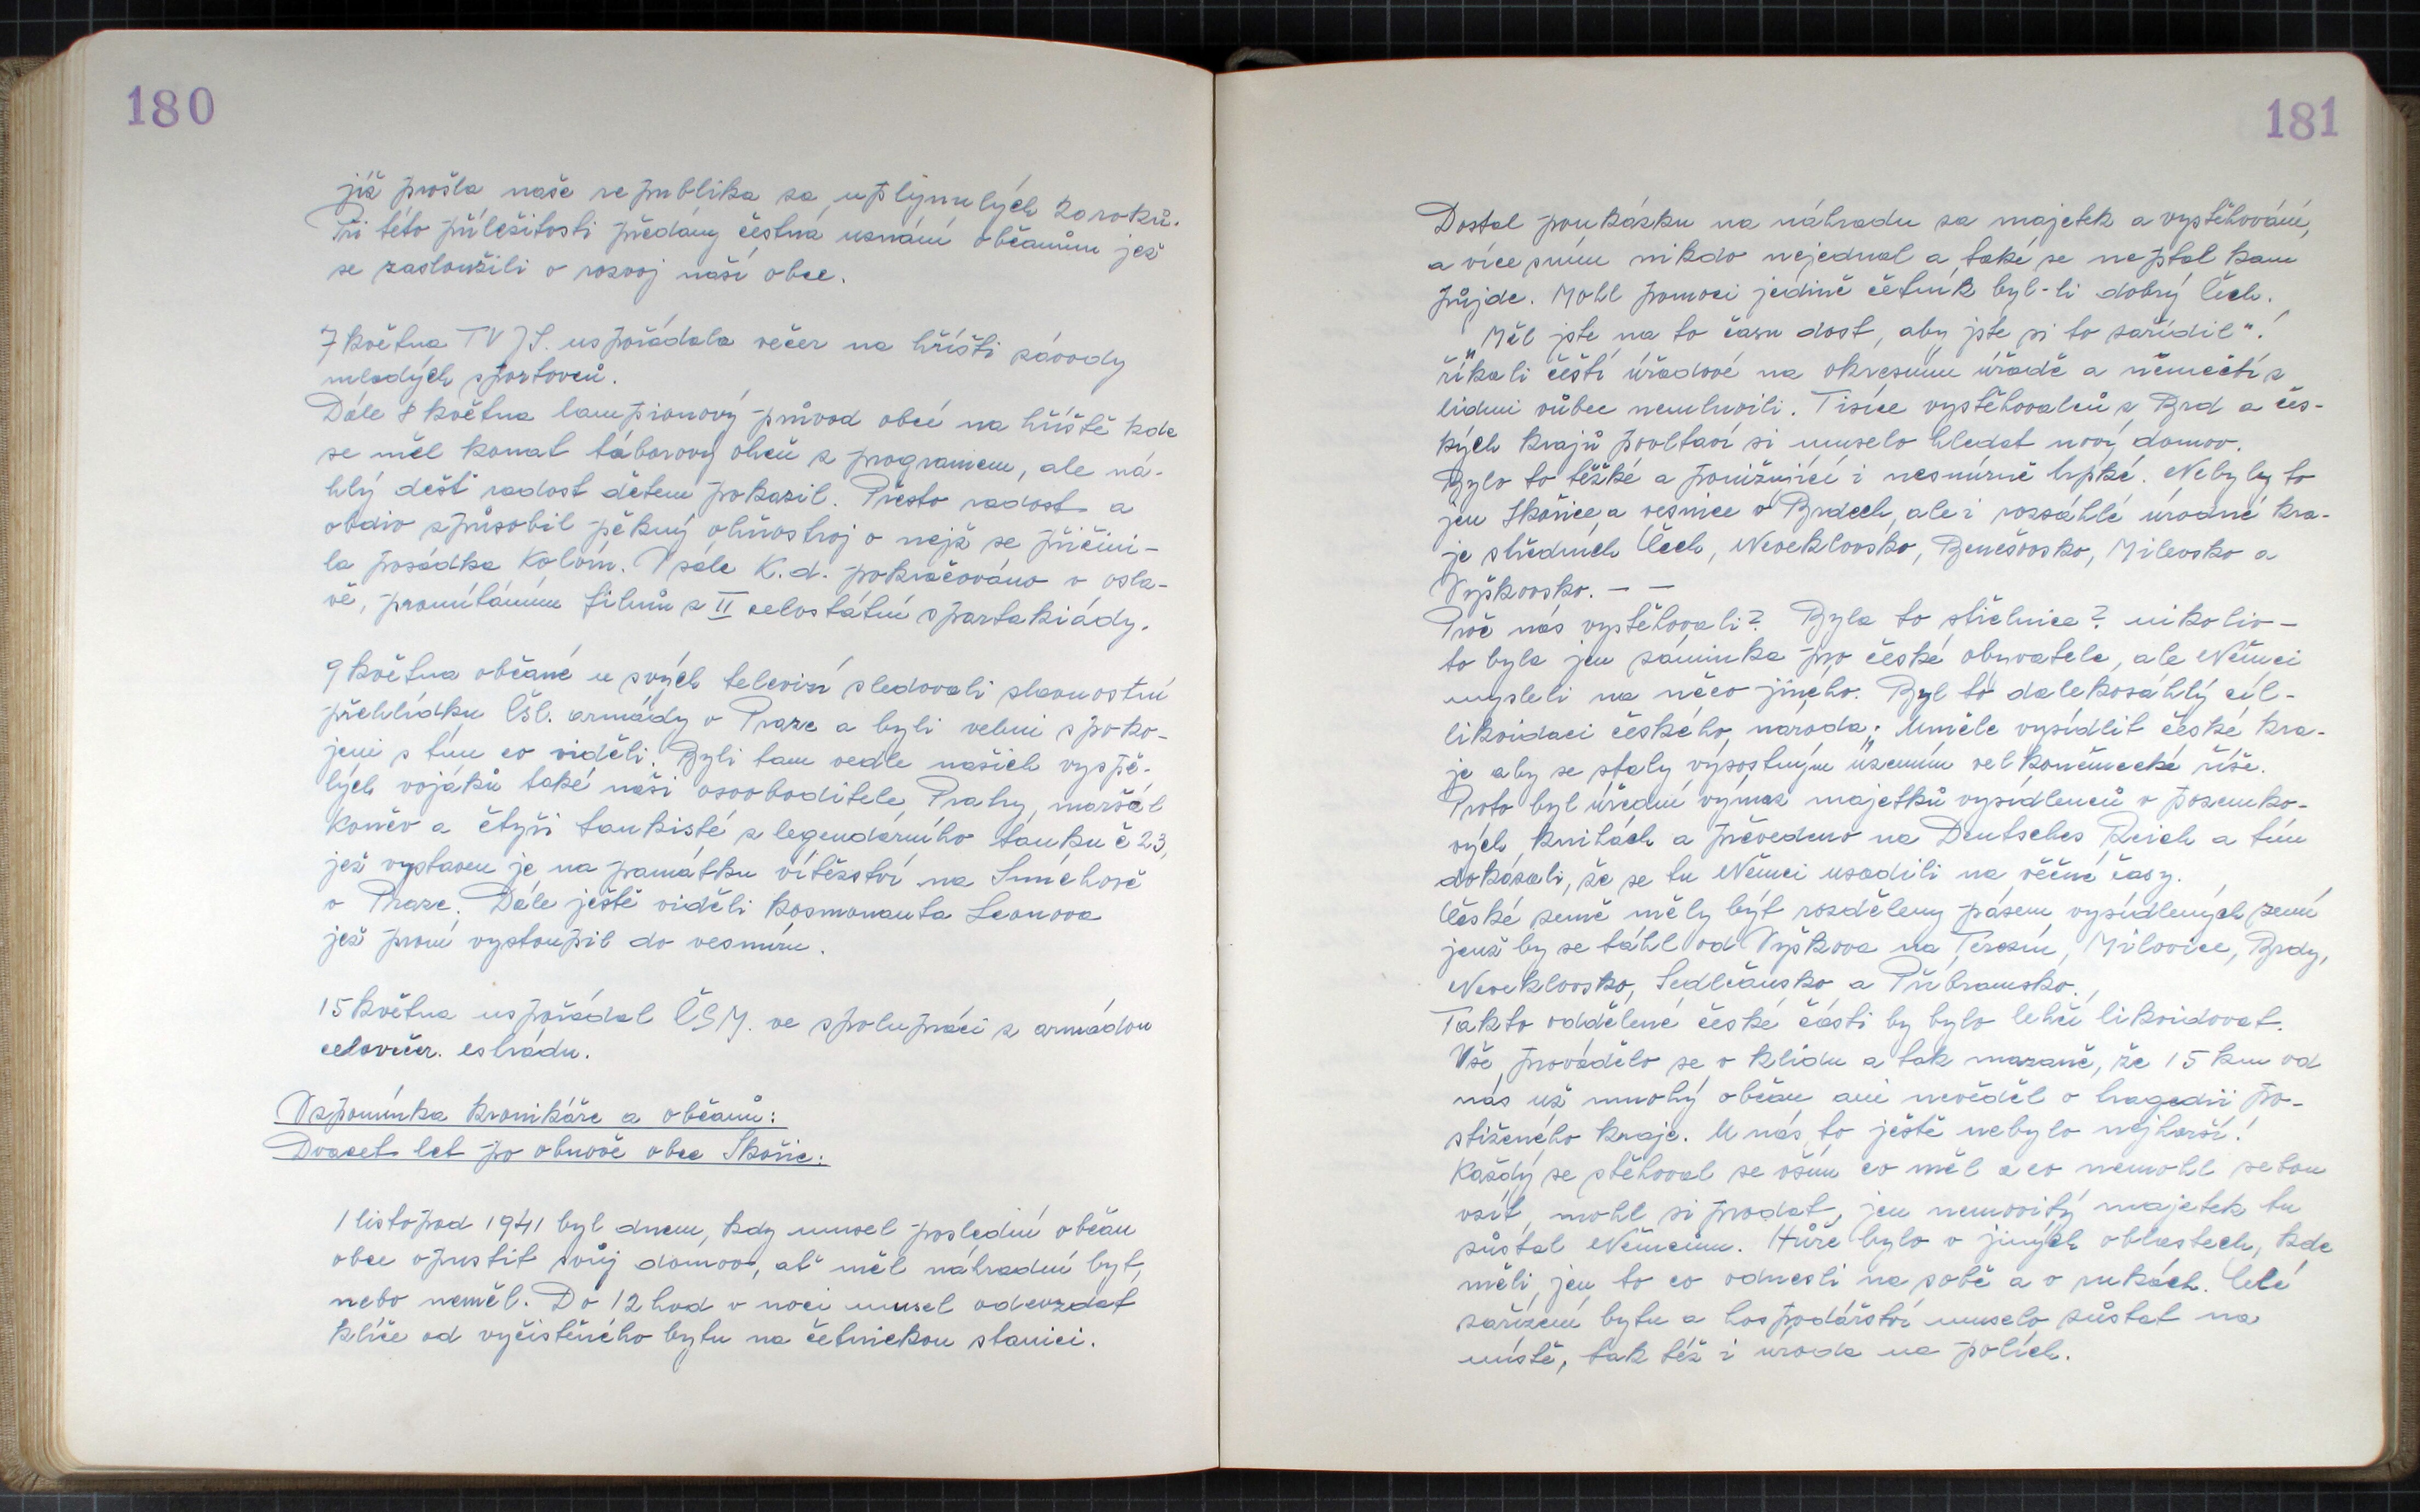 180
již prošla naše republika za uplynulých 20 roků.
Při této příležitosti předány čestná uznání občanům jež
se zasloužili o rozvoj naší obce.
7 května TV JS. uspořádala večer na hřišti závody
mladých sportovců.
Dále 8 května lampionový průvod obcí na hřiště kde
se měl konat táborový oheň s programem, ale ná-
hlý déšť radost dětem pokazil. Přesto radost a
obdiv způsobil pěkný ohňostroj o nejž se přičini-
la posádka Kolvín. V sále K.d. pokračováno v osla-
vě, promítáním filmů z II celostátní spartakiády.
9 května občané u svých televizí sledovali slavnostní
přehlídku Čsl. armády v Praze a byli velmi spoko-
jeni s tím co viděli. Byli tam vedle našich vyspě-
lých vojáků také naši osvoboditelé Prahy, maršál
Koněv a čtyři tankisté z legendárního tanku č 23,
jež vystaven je na památku vítězství na Smíchově
v Praze. Dále ještě viděli kosmonauta Leonova
jež první vystoupil do vesmíru.
15 května uspořádal ČSM. ve spolupráci s armádou
celovečer. estrádu.
Vzpomínka kronikáře a občanů:
Dvacet let po obnově obce Skořic:
1 listopad 1941 byl dnem, kdy musel poslední občan
obce opustit svůj domov, ať měl náhradní byt,
nebo neměl. Do 12 hod v noci musel odevzdat
klíče od vyčistěného bytu na četnickou stanici.
181
Dostal poukázku na náhradu za majetek a vystěhování,
a více s ním nikdo nejednal a také se neptal kam
půjde. Mohl pomoci jedině četník byl-li dobrý Čech.
„Měl jste na to času dost, aby jste si to zařídil".!
říkali čeští úřadové na okresním úřadě a němečtí s
lidmi vůbec nemluvili. Tisíce vystěhovalců z Brd a čes-
kých krajů Povltaví si muselo hledat nový domov.
Bylo to těžké a ponižující i nesmírně trpké. Nebyly to
jen Skořice a vesnice v Brdech, ale i rozsáhlé úrodné kra-
je středních Čech, Neveklovsko, Benešovsko, Milevsko a
Vyškovsko. — —
Proč nás vystěhovali? Byla to střelnice? nikoliv -
to byla jen záminka pro české obyvatele, ale Němci
mysleli na něco jiného. Byl to dalekosáhlý cíl -
likvidaci českého naroda; Uměle vysídlit české kra-
je aby se staly výsostným územím velkoněmecké říše.
Proto byl úřední výmaz majetků vysídlenců v pozemko-
vých knihách a převedeno na Deutsches Reich a tím
dokázali, že se tu Němci usadili na věčné časy.
České země měly být rozděleny pásem vysídlených zemí
jenž by se táhl od Vyškova na Terezín, Milovice, Brdy,
Neveklovsko, Sedlčansko a Příbramsko.
Takto oddělené české části by bylo lehčí likvidovat.
Vše provádělo se v klidu a tak mazaně, že 15 km od
nás už mnohý občan ani nevěděl o tragedii po-
stiženého kraje. U nás to ještě nebylo nejhorší!
Každý se stěhoval se vším co měl a co nemohl sebou
vzít, mohl si prodat, jen nemovitý majetek tu
zůstal Němcům. Hůře bylo v jiných oblastech, kde
měli jen to co odnesli na sobě a v rukách. Celé
zařízení bytu a hospodářství muselo zůstat na
místě, tak též i uroda na polích.